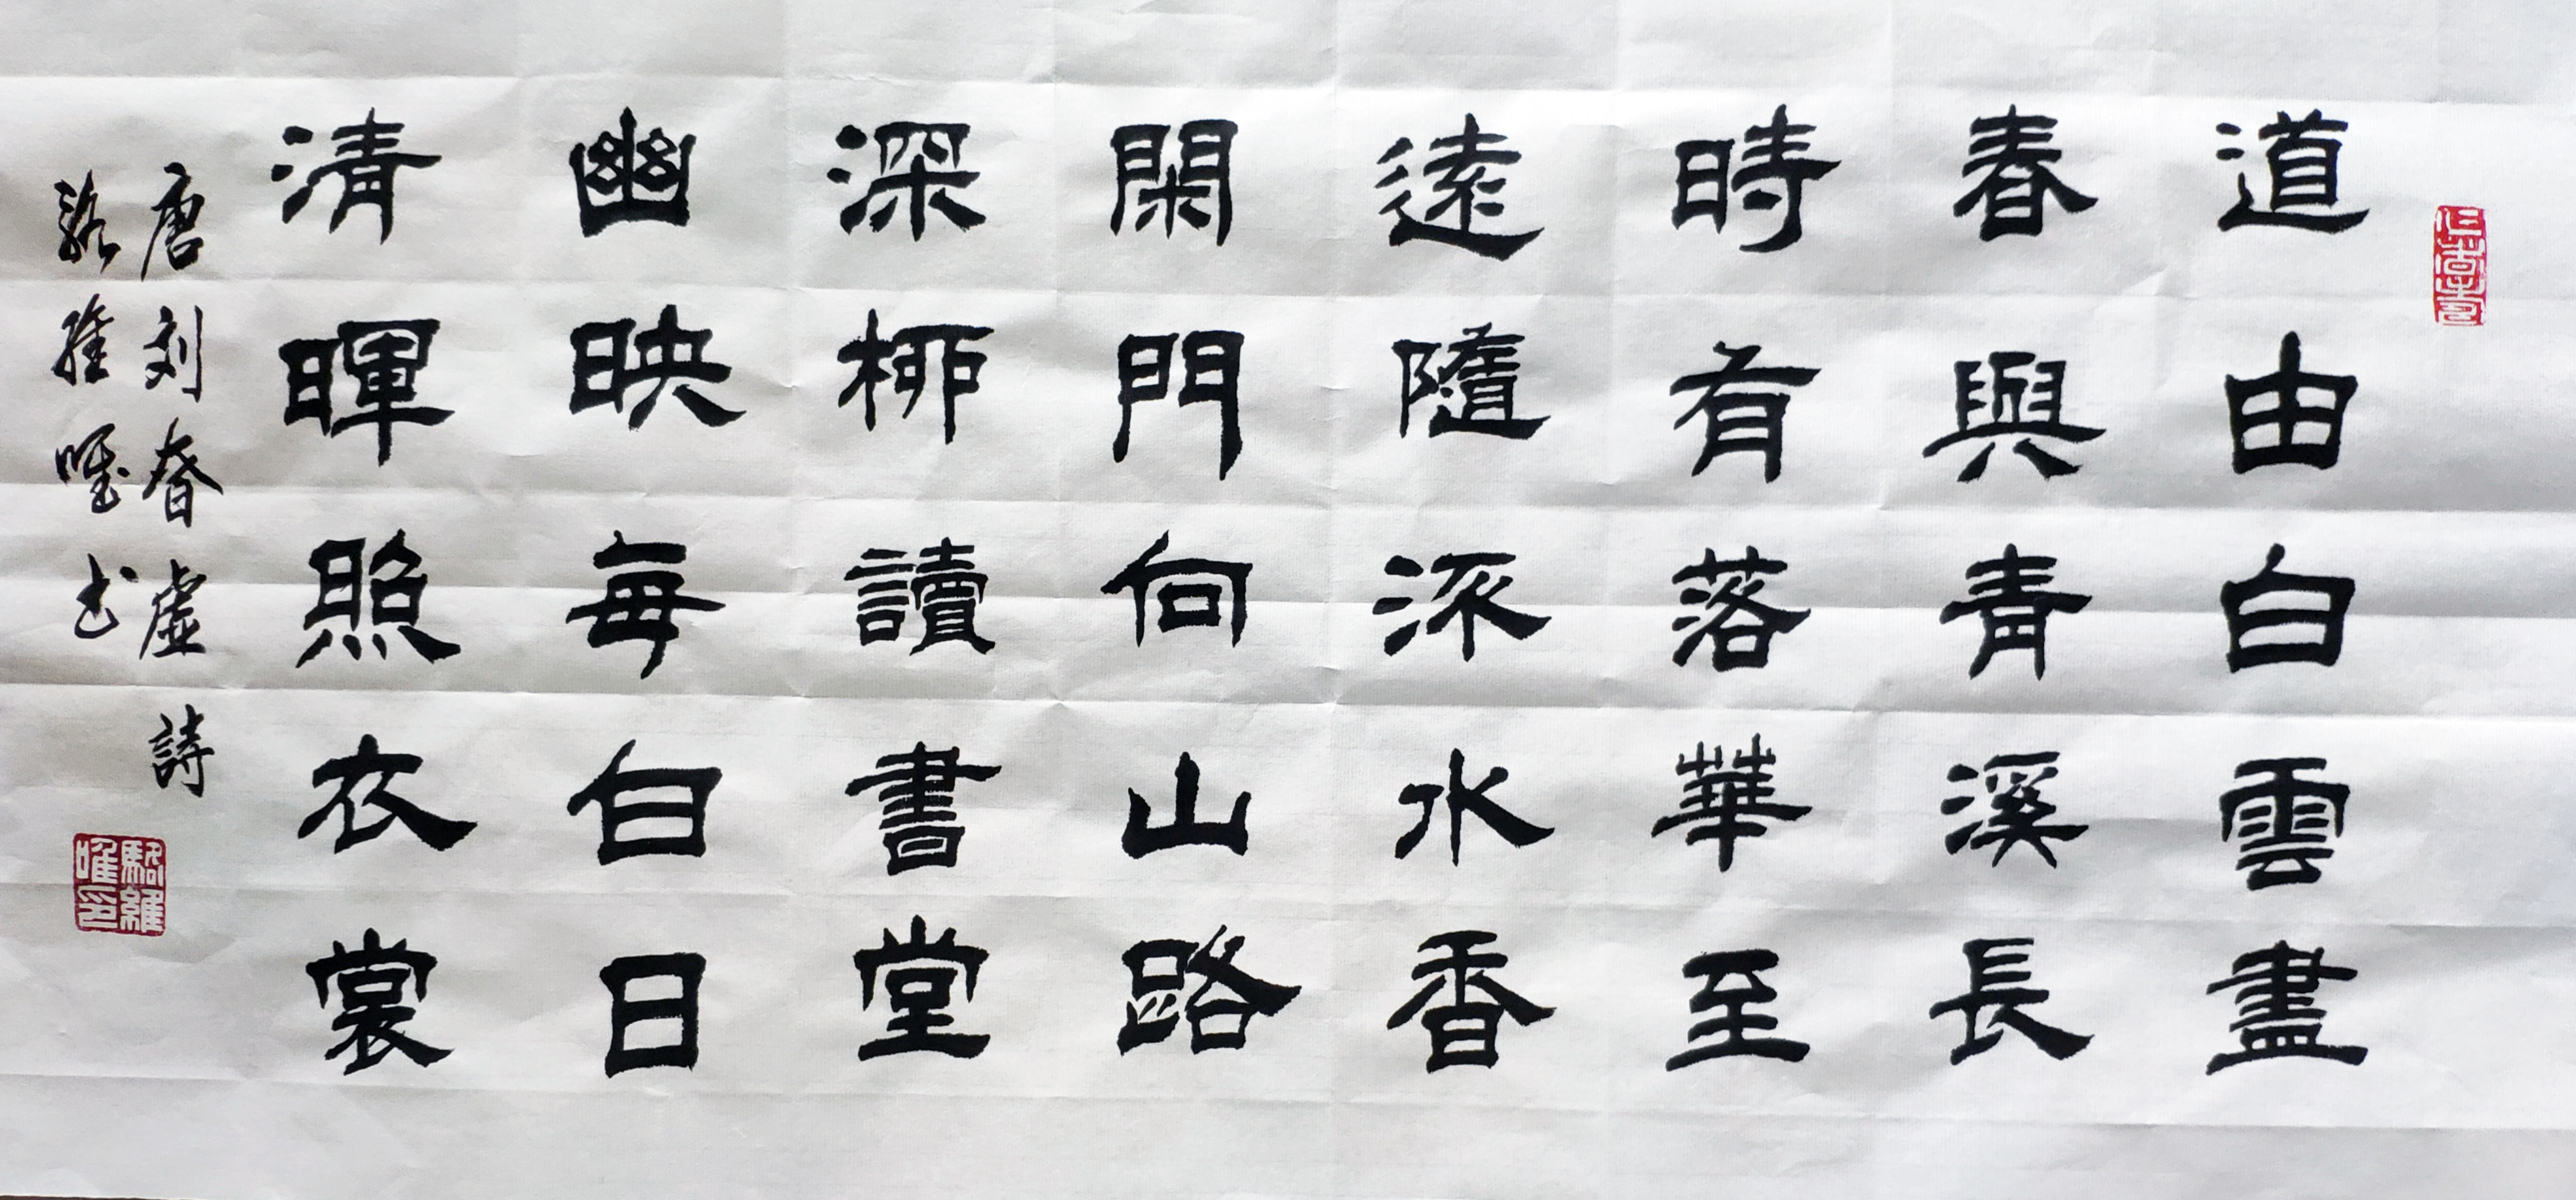 道由白雲盡
春與青溪長
時有落華至
遠隨流水香
閑門向山路
深柳讀書堂
幽映每白日
清暉照衣裳
唐刘昚虛詩
駱維唯书
駱維唯印